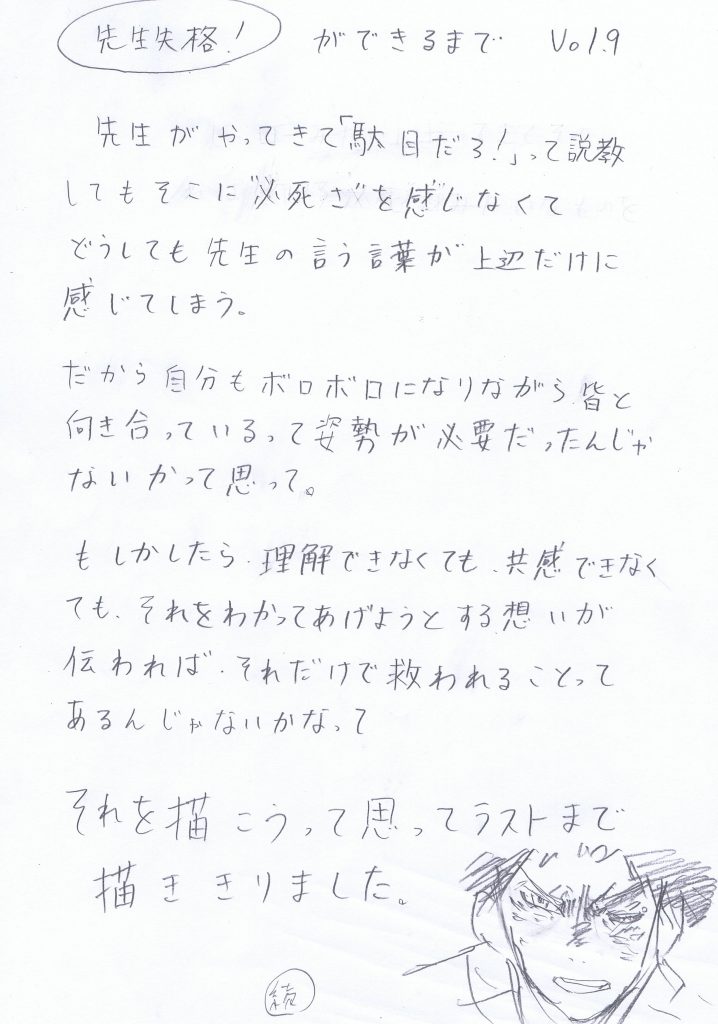 先生失格! ができるまで Vol.9
先生がやってきて「駄目だろ!」って説教
してもそこに"必死さ"を感じなくて
どうしても先生の言う言葉が上辺だけに
感じてしまう。
だから自分もボロボロになりながら皆と
向き合っているって姿勢が必要だったんじゃ
ないかって思って。
もしかしたら、理解できなくても、共感できなく
ても、それをわかってあげようとする想いが
伝われば、それだけで救われることって
あるんじゃないかなって
それを描こうって思ってラストまで
描ききりました。
続